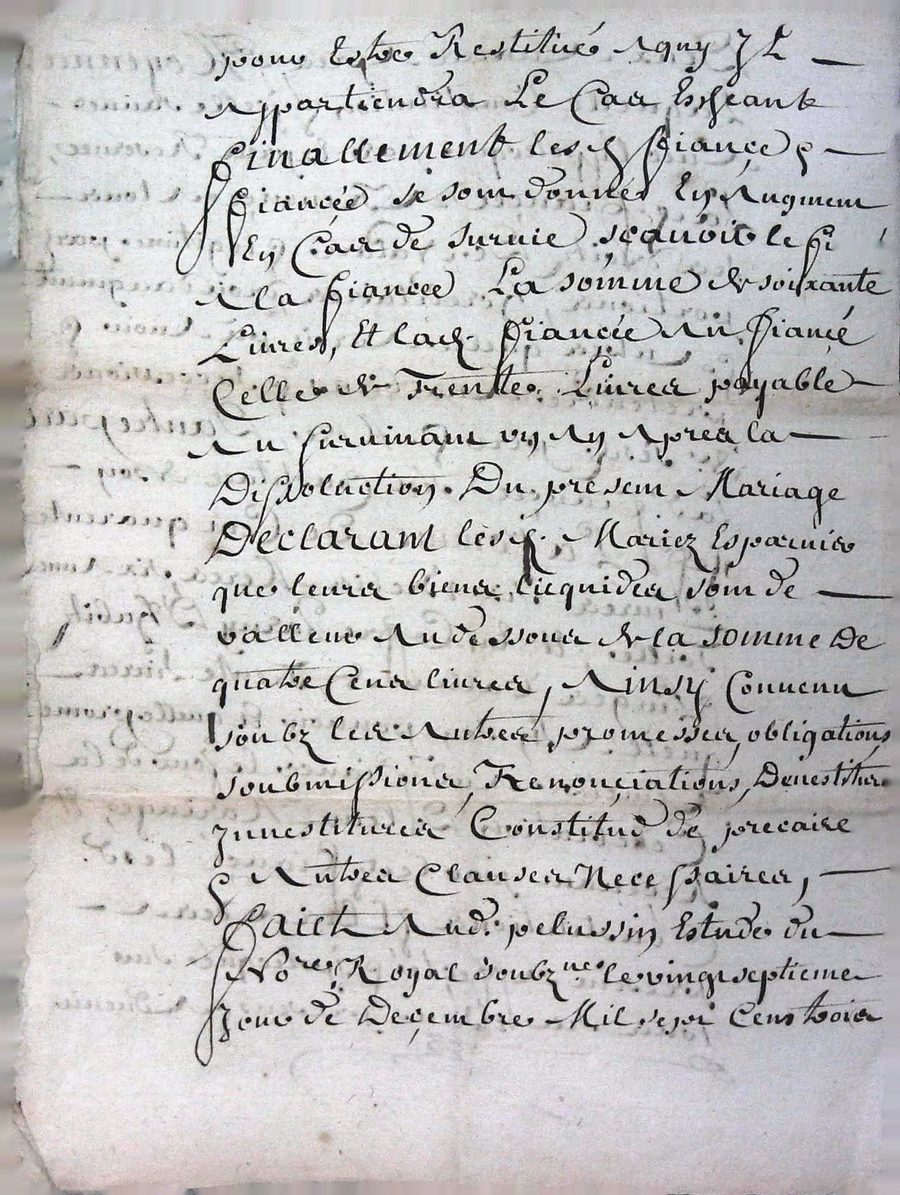 pour Estre Restitué Aquy Il
Appartiendra Le Cas Escheant
Finallement lesd fiance &
fiancée se sont donnés En Augment
En Cas de survie sçavoir le fi
A la fiancée La somme de soixante
Livres, Et lad. fiancée Au fiancé
Celle de Trente Livres payable
Au survivant un An Apres la
Dissolution Du present Mariage
Declarant lesd. Mariez Esparnir
que leurs biens licquides sont de
valleur Audessous de la somme De
quatre Cens livres, Ainsy Convenu
soubz les Autres promesses, obligations,
soubmissions, Renonciations, Devestitures
Investitures Constitud de precaire
& Autres Clauses Necessaires,
Faict Aud. pelussin Estude du
No.re Royal soubz.né le vingt septieme
Jour de Decembre Mil sept Cens trois